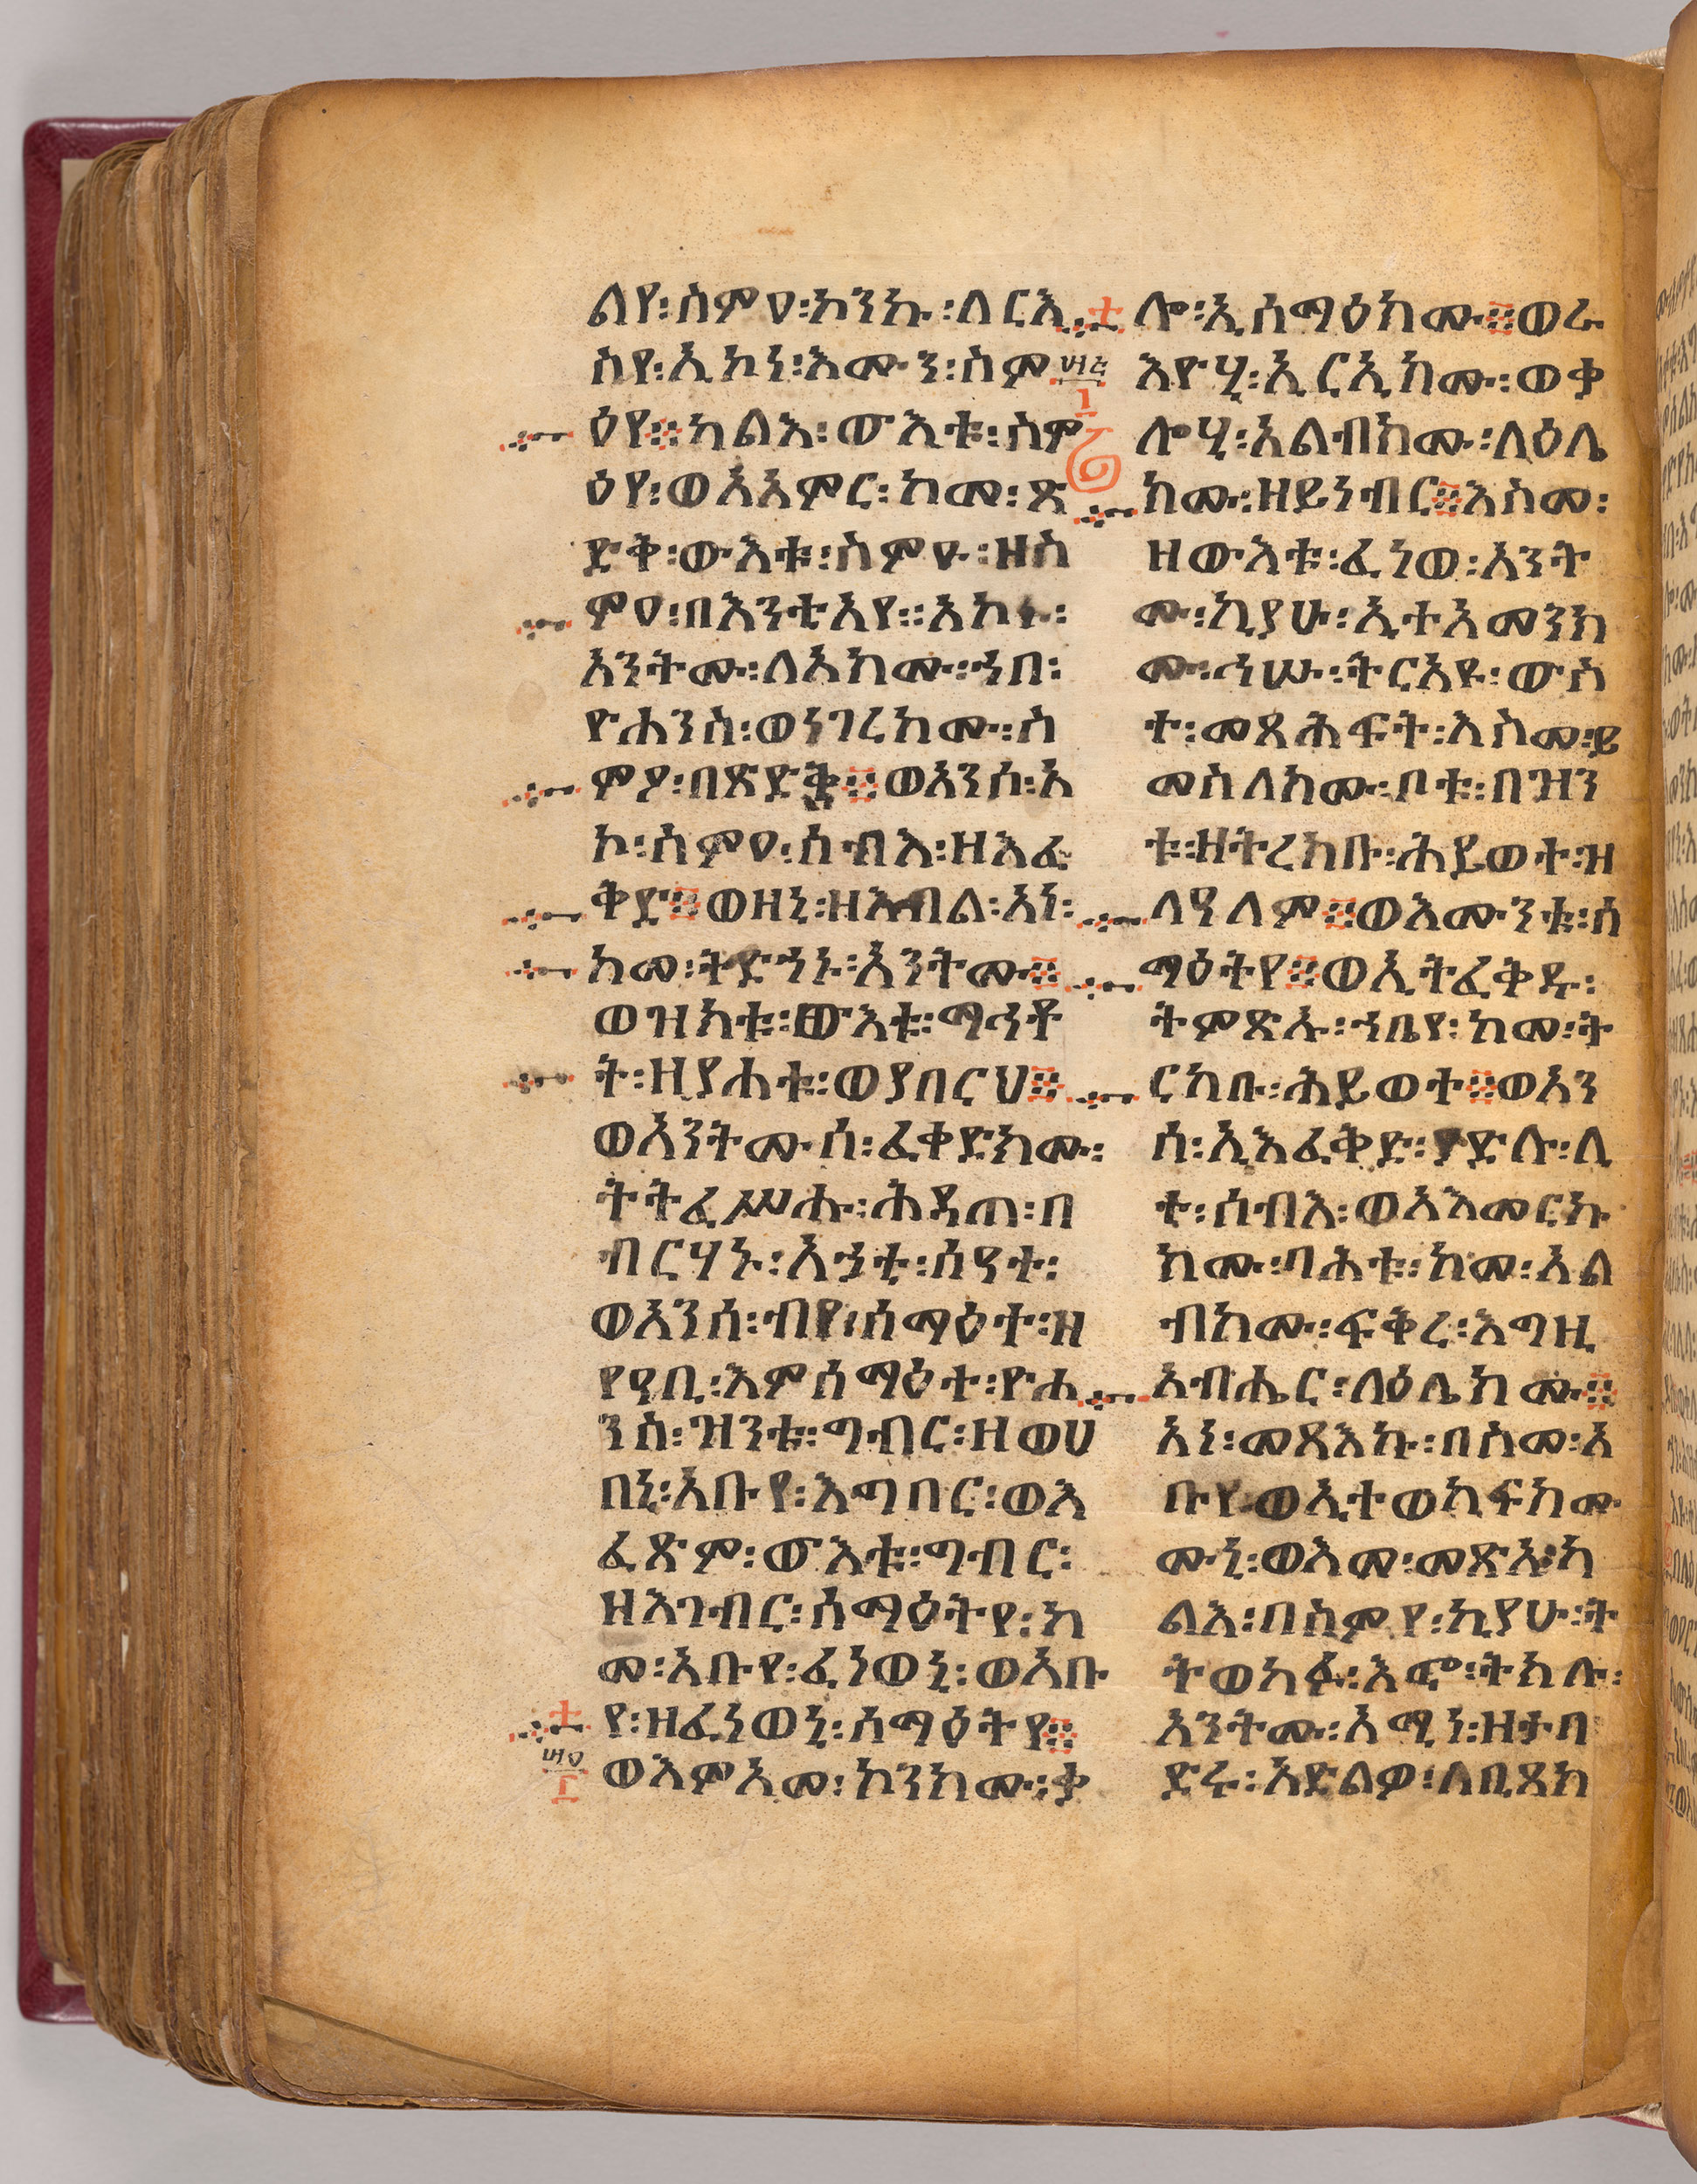 ልየ፡ስምዐ፡ኮንኩ፡ለርእ
ስየ፡ኢኮነ፡እሙን፡ስም
ዕየ፨ካልእ፡ውእቱ፡ስም
ዕየ፡ወአአምር፡ከመ፡ጽ
ድቅ፡ውእቱ፡ስምዑ፡ዘስ
ምዐ፡በእንቲአየ፡፡አኮኑ፡
አንትሙ፡ለአክሙ፡ኀበ፡
ዮሐንስ፡ወነገረክሙ፡ስ
ምዖ፡በጽድቅ፨ወአንሰ፡አ
ኮ፡ስምዐ፡ሰብእ፡ዘእፈ
ቅድ፨ወዘኒ፡ዘእብል፡አነ፡
ከመ፡ትድኀኑ፡አንትሙ፨
ወዝክቱ፡ውእቱ፡ማኅቶ
ት፡ዘያሐቱ፡ወያበርህ፨
ወአንትሙሰ፡ፈቀድክሙ፡
ትትፈሥሑ፡ሕዳጠ፡በ
ብርሃኑ፡አኀቲ፡ሰዓተ፡
ወአንሰ፡ብየ፡ሰማዕተ፡ዘ
የዓቢ፡እምሰማዕተ፡ዮሐ
ንስ፡ዝንቱ፡ግብር፡ዘወሀ
በኒ፡አቡየ፡እግበር፡ወእ
ፈጽም፡ውእቱ፡ግብር፡
ዘእገብር፡ሰማዕትየ፡ከ
መ፡አቡየ፡ፈነወኒ፡ወአቡ
የ፡ዘፈነወኒ፡ሰማዕትየ፨
ወእምአመ፡ኮንክሙ፡ቃ
ሎ፡ኢሰማዕክሙ፨ወራ
እዮሂ፡ኢርኢክሙ፡ወቃ
ሎሂ፡አልብክሙ፡ለዕሌ
ክሙ፡ዘይነብር፨እስመ፡
ዘውእቱ፡ፈነወ፡አንት
ሙ፡ኪያሁ፡ኢተአመንክ
ሙ፡ኀሡ፡ትርአዩ፡ውስ
ተ፡መጻሕፍት፡እስመ፡ይ
መስለክሙ፡ቦቱ፡በዝን
ቱ፡ዘትረክቡ፡ሕይወተ፡ዝ
ለዓለም፨ወእሙንቱ፡ሰ
ማዕትየ፨ወኢትፈቅዱ፡
ትምጽኡ፡ኀቤየ፡ከመ፡ት
ርከቡ፡ሕይወተ፨ወአን
ሰ፡ኢእፈቅድ፡ያድሉ፡ሊ
ተ፡ሰብእ፡ወአእመርኩ
ክሙ፡ባሕቱ፡ከመ፡አል
ብክሙ፡ፍቅረ፡እግዚ
አብሔር፡ለዕሌክሙ፨
አነ፡መጻእኩ፡በስመ፡አ
ቡየ፡ወኢተወከፍክሙ
ሙኒ፡ወእመ፡መጽአ፡ካ
ልእ፡በስምየ፡ኪያሁ፡ት
ትወከፉ፡እፎ፡ትክሉ፡
አንትሙ፡አሚነ፡ዘታበ
ድሩ፡አድልዎ፡ለቢጸክ